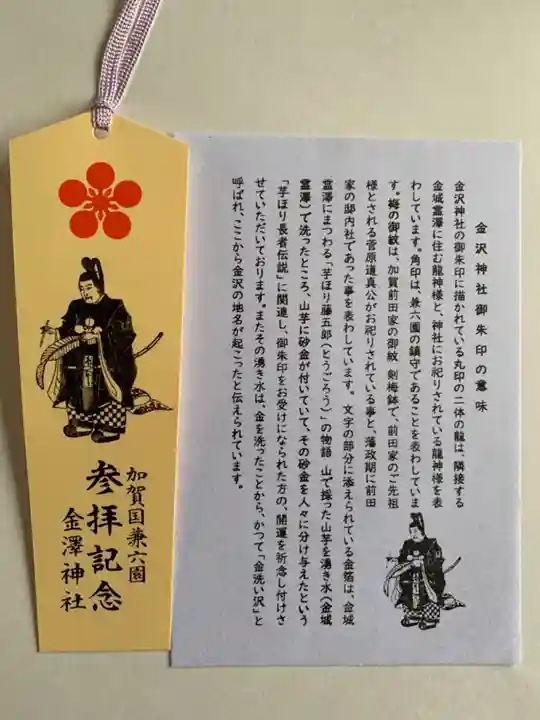 加賀国兼六園
参拝記念
金澤神社
金沢神社御朱印の意味
金沢神社の御朱印に描かれている丸印の二体の龍は、隣接する
金城霊澤に住む龍神様と、神社にお祀りされている龍神様を表
わしています。角印は、兼六園の鎮守であることを表わしていま
す。梅の御紋は、加賀前田家の御紋 剣梅鉢で、前田家のご先祖
様とされる菅原道真公がお祀りされている事と、藩政期に前田
家の邸内社であった事を表わしています。文字の部分に添えられている金箔は、金城
霊澤にまつわる「芋ほり藤五郎(とうごろう)」の物語 山で採った山芋を湧き水(金城
霊澤)で洗ったところ、山芋に砂金が付いていて、その砂金を人々に分け与えたという
「芋ほり長者伝説」に関連し、御朱印をお受けになられた方の、開運を祈念し付けさ
せていただいております。またその湧き水は、金を洗ったことから、かつて「金洗い沢」と
呼ばれ、ここから金沢の地名が起こったと伝えられています。